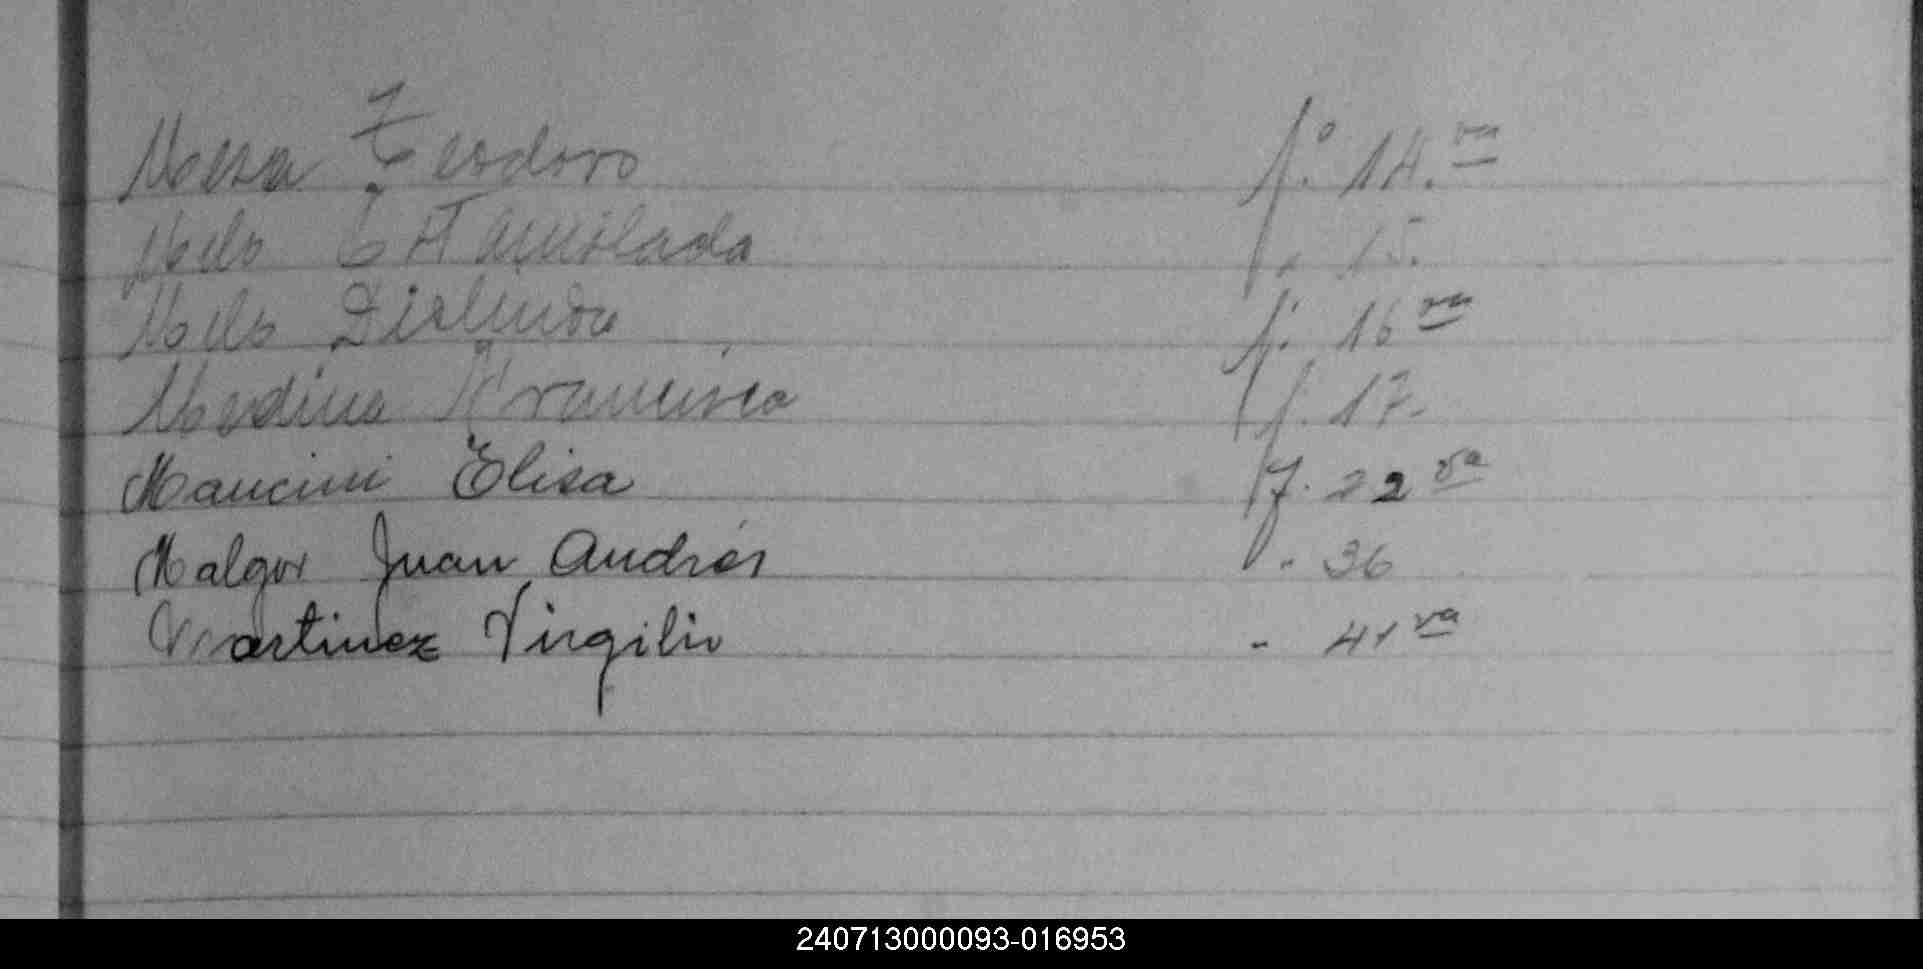 Mesa Teodoro fº. 14. va
Melo Estanislada " 15.
Melo f. 16 va
Medina Francisca f. 17.
Mancini Elisa f. 22 va
Malgor Juan Andrés " 36
Martinez Virgilio " 41 va
240713000093-016953